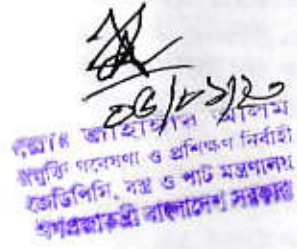 ০৫/০১/২০
জাহাঙ্গীর আলম
প্রযুক্তি গবেষণা ও প্রশিক্ষণ নির্বাহী
জেডিপিসি, বস্ত্র ও পাট মন্ত্রণালয়
গণপ্রজাতন্ত্রী বাংলাদেশ সরকার